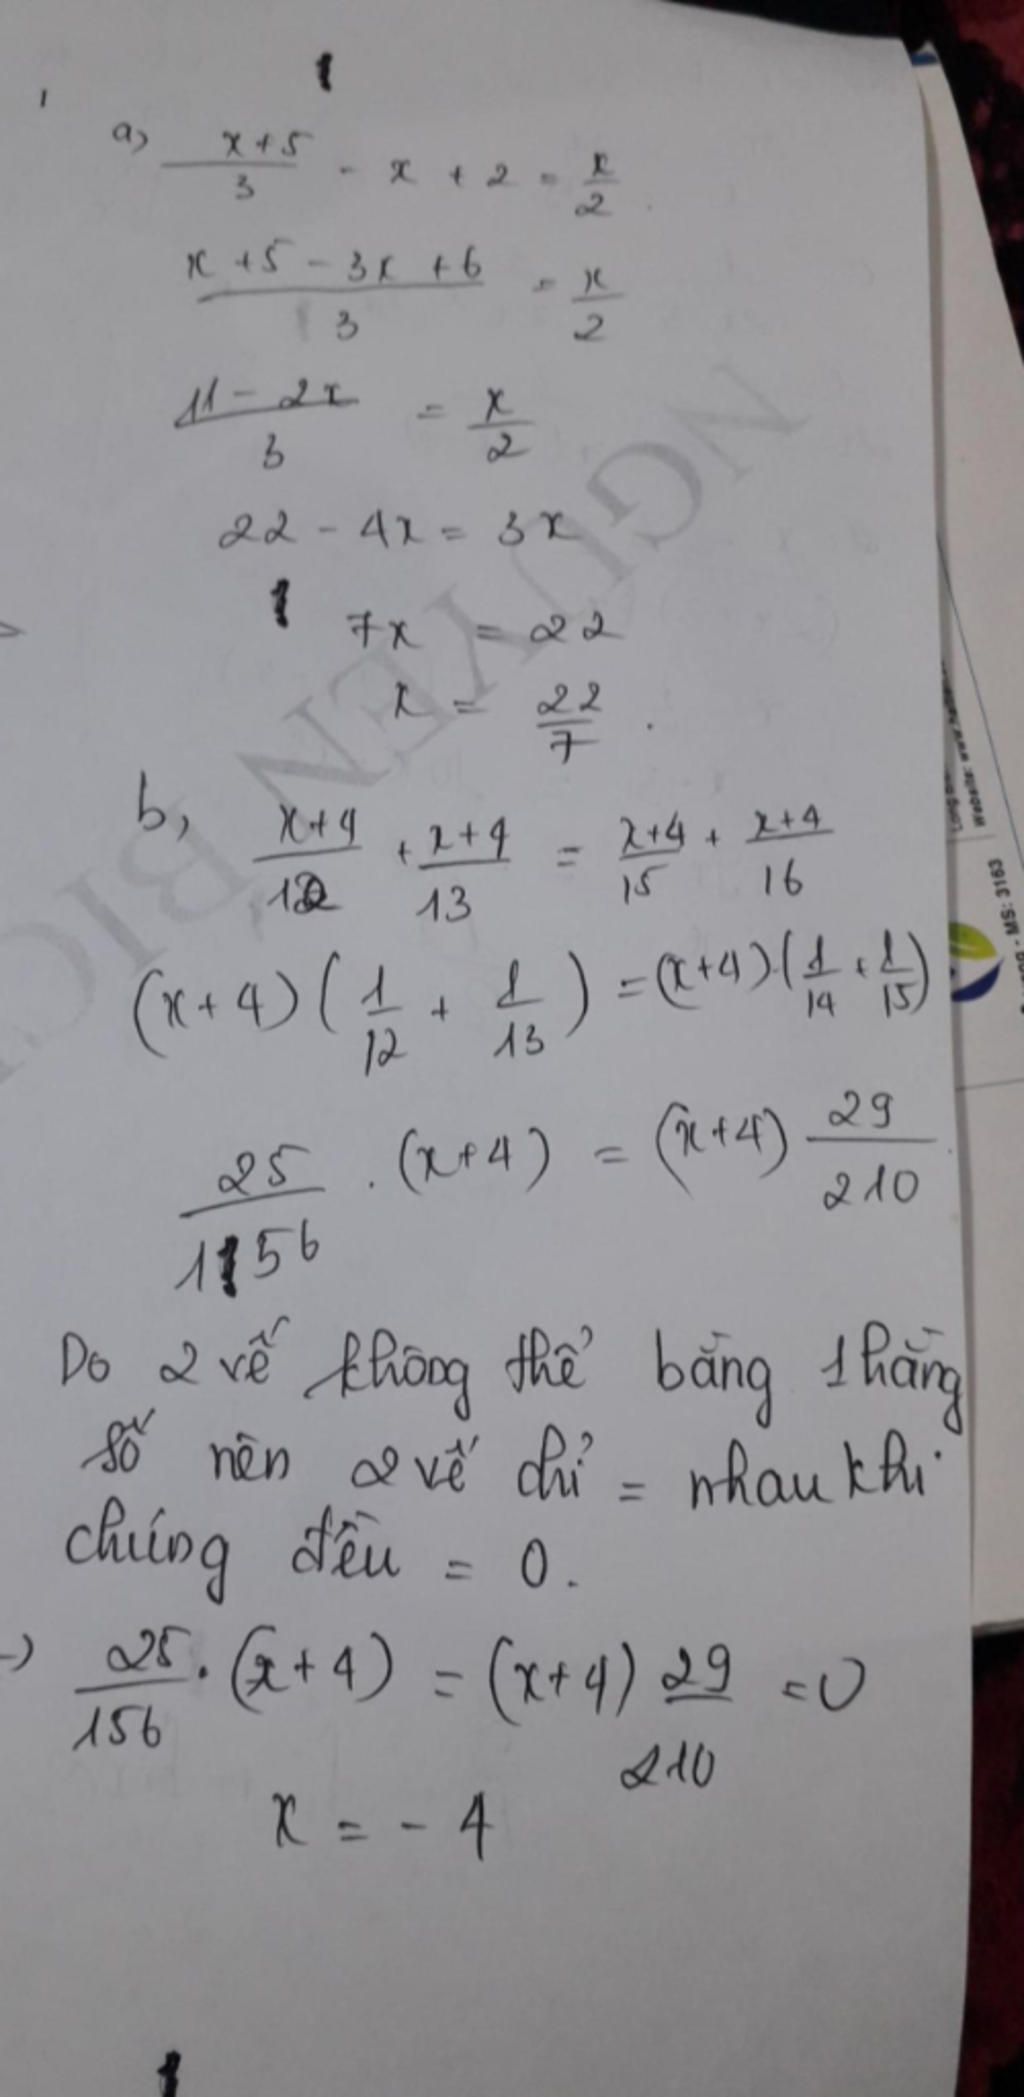 a) (x+5)/3 - x + 2 = x/2
(x+5-3x+6)/3 = x/2
(11-2x)/3 = x/2
22 - 4x = 3x
7x = 22
x = 22/7.
b, (x+4)/12 + (x+4)/13 = (x+4)/15 + (x+4)/16
(x+4)(1/12 + 1/13) = (x+4).(1/14 + 1/15)
25/156 . (x+4) = (x+4) 29/210
Do 2 vế không thể bằng 1 hằng
số nên 2 vế chỉ = nhau khi
chúng đều = 0.
→ 25/156 . (x+4) = (x+4) 29/210 = 0
x = -4
NGUYEN BIC
MS: 3163